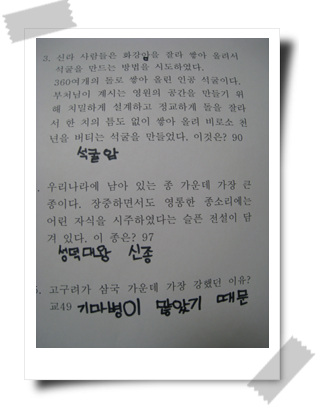 3. 신라 사람들은 화강암을 잘라 쌓아 올려서
석굴을 만드는 방법을 시도하였다.
360여개의 돌로 쌓아 올린 인공 석굴이다.
부처님이 계시는 영원의 공간을 만들기 위
해 치밀하게 설계하고 정교하게 돌을 잘라
서 한 치의 틈도 없이 쌓아 올려 비로소 천
년을 버티는 석굴을 만들었다. 이것은? 90
석굴암
우리나라에 남아 있는 종 가운데 가장 큰
종이다. 장중하면서도 영롱한 종소리에는
어린 자식을 시주하였다는 슬픈 전설이 담
겨 있다. 이 종은? 97
성덕대왕 신종
고구려가 삼국 가운데 가장 강했던 이유?
교49 기마병이 많았기 때문